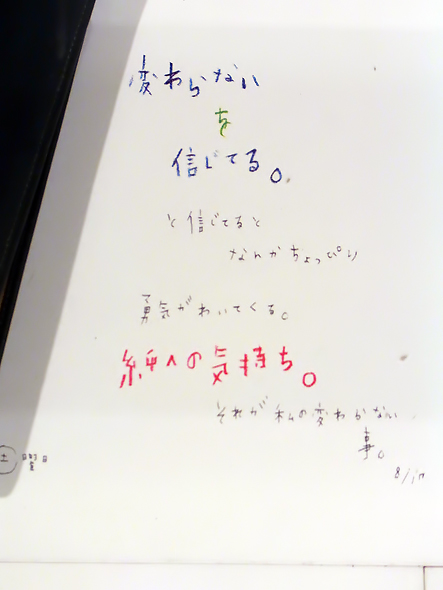 変わらない
を
信じてる。
と信じてると
なんかちょっぴり
勇気がわいてくる。
絆への気持ち。
それが私の変わらない
事。
土曜日